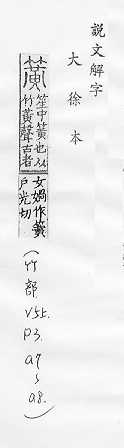 說文解字
大徐本
簧
笙中簧也从
竹黃聲古者
女媧作簧
戶光切
(竹部
V5上.
P3.
a7
~
a8.)